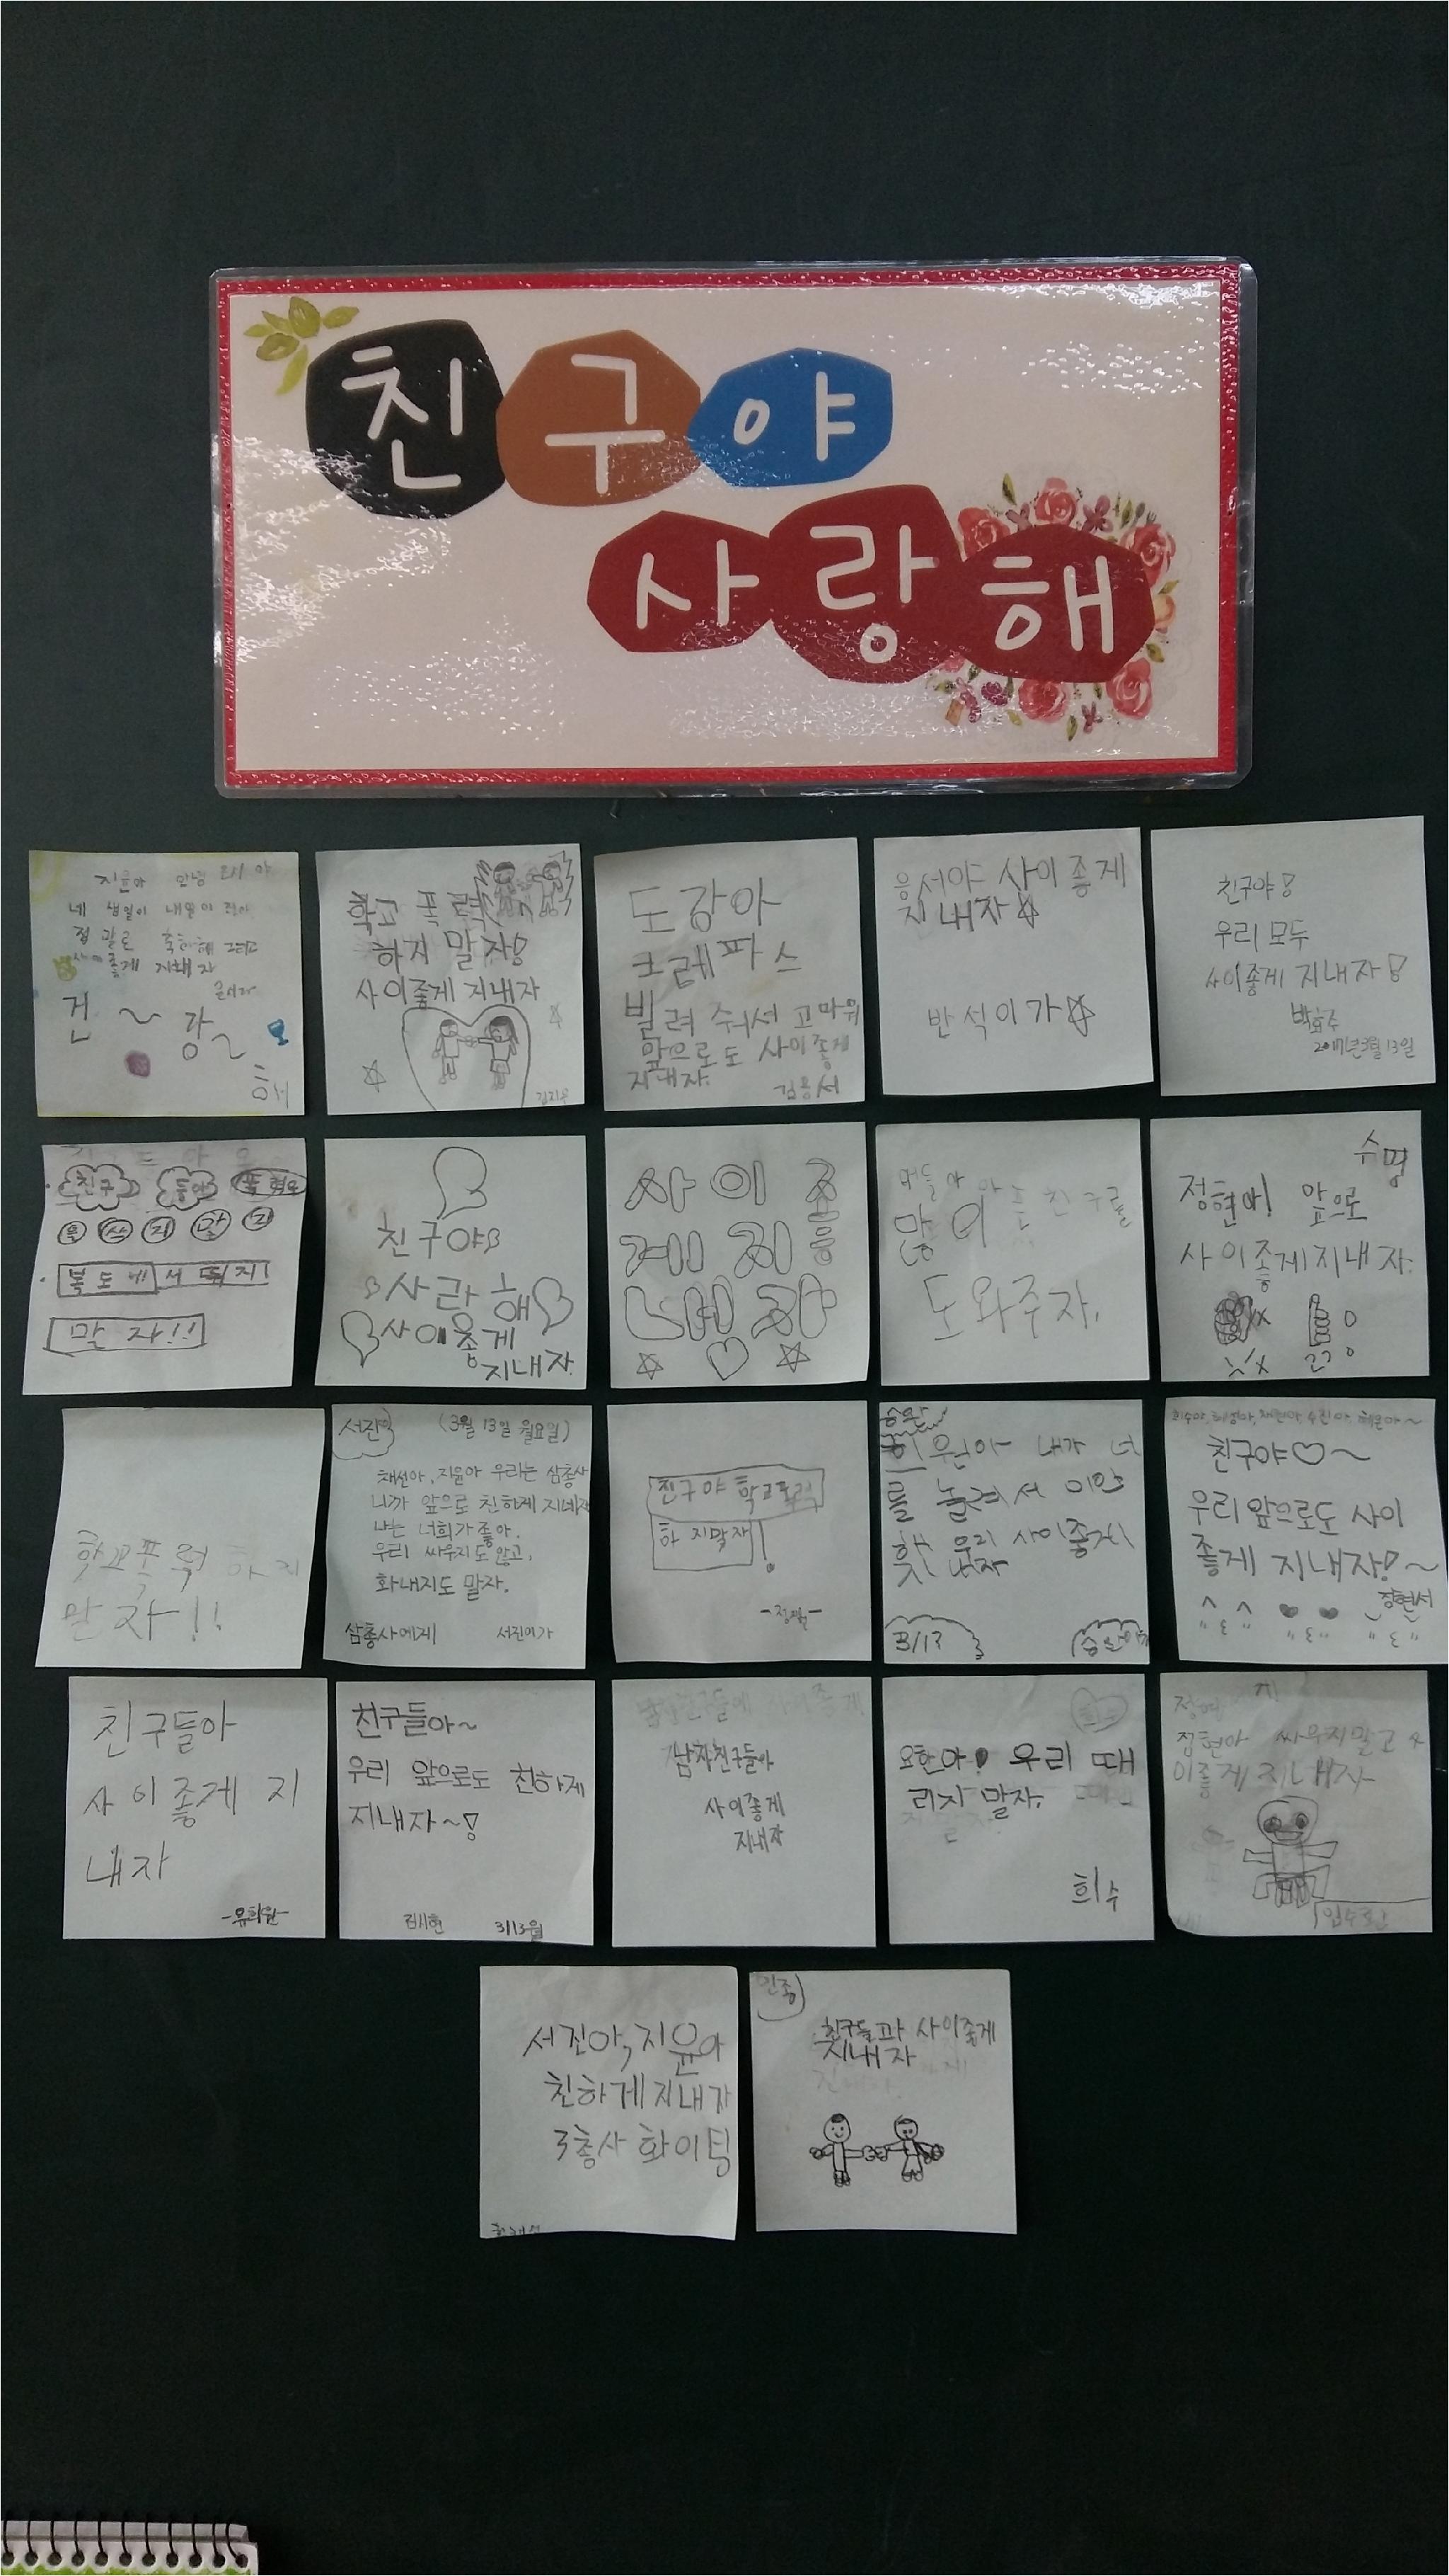 친구야
사랑해
지윤아 안녕
네 생일이 내일이
축하해 그리고
사이좋게 지내자
건 ~ 강~
해
학교 폭력
하지 말자!
사이좋게 지내자
도강아
크레파스
빌려 줘서 고마워
앞으로도 사이좋게
지내자.
김응서
응서야 사이좋게
지내자☆
반석이가☆
친구야!
우리 모두
사이좋게 지내자!
2017년 3월 13일
친구 들아 폭력
을 쓰지 말자
복도에서 뛰지
말자!!
친구야
사랑해
사이좋게
지내자
사이좋
게 지
내자
친구를
많이
도와주자.
수명
정현아! 앞으로
사이좋게 지내자.
학교폭력 하지
말자!!
서진이 (3월 13일 월요일)
채선아, 지윤아 우리는 삼총사
니까 앞으로 친하게 지내자
나는 너희가 좋아.
우리 싸우지도 않고,
화내지도 말자.
삼총사에게 서진이가
친구야 학교폭력
하지말자!
희원아 내가 너
를 놀려서 미안
해 우리 사이좋게
지내자
3/13
친구야♡~
우리 앞으로도 사이
좋게 지내자!~
장현서
친구들아
사이좋게 지
내자
-유희원-
친구들아~
우리 앞으로도 친하게
지내자~!
김시현 3/13월
남자친구들아
사이좋게
지내자
요한아! 우리 때
리지 말자.
희수
정현아 싸우지말고 사
이좋게 지내자
서진아, 지윤아
친하게 지내자
3총사 화이팅
민종
친구들과 사이좋게
지내자